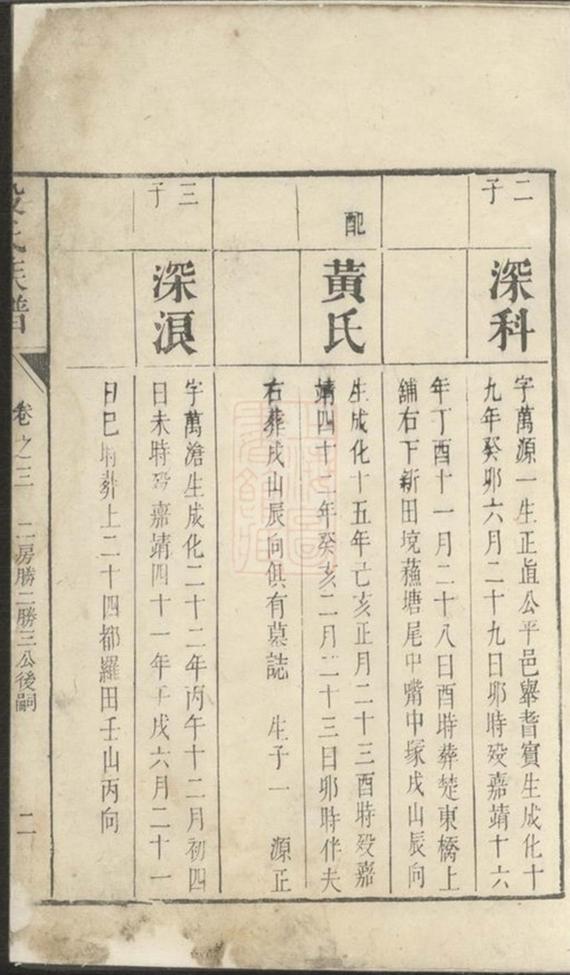 二子
深科
字萬源一生正直公平邑舉耆賓生成化十
九年癸卯六月二十九日卯時歿嘉靖十六
年丁酉十一月二十八日酉時葬楚東橋上
舖右下新田境蘓塘尾中嘴中塚戌山辰向
配
黃氏
生成化十五年亡亥正月二十三酉時歿嘉
靖四十二年癸亥二月二十三日卯時伴夫
右葬戌山辰向俱有墓誌 生子一 源正
三子
深浿
字萬滄生成化二十二年丙午十二月初四
日未時歿嘉靖四十一年壬戌六月二十一
日巳時葬上二十四都羅田壬山丙向
氏族譜
卷之三 二房勝二勝三公後嗣 二